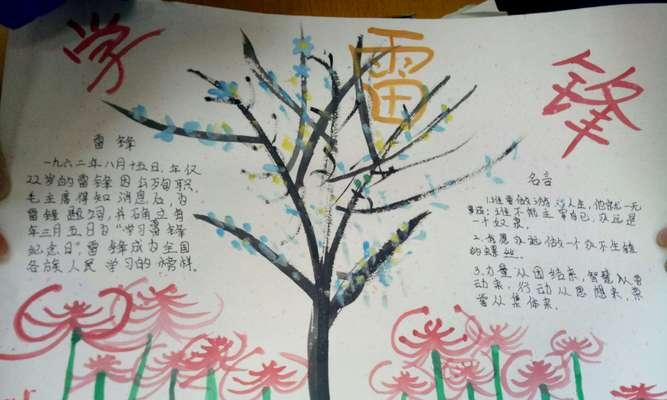 学 雷 锋
雷锋
一九六二年八月十五日,年仅
22岁的雷锋因公殉职,
毛主席得知消息后,为
雷锋题词,并确立每
年三月五日为“学习雷锋
纪念日”,雷锋成为全国
各族人民学习的榜样。
名言
1.谁要游戏人生,他就一无
事成;谁不能主宰自己,永远是
一个奴隶。
2.我愿永远做一个永不生锈
的螺丝。
3.力量从团结来,智慧从劳
动来,行动从思想来,荣
誉从集体来。